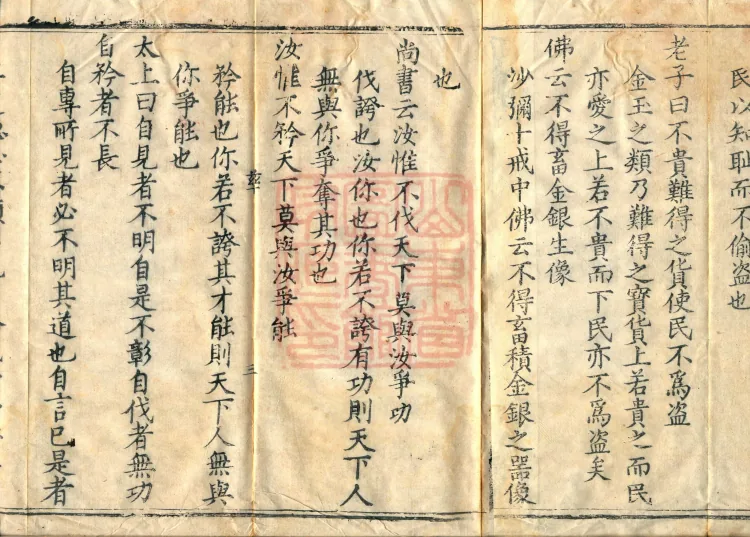 民以知耻而不偷盗也
老子曰不貴難得之貨使民不爲盗
金玉之類乃難得之寶貨上若貴之而民
亦愛之上若不貴而下民亦不爲盗矣
佛云不得畜金銀生像
沙彌十戒中佛云不得畜積金銀之噐像
也
尚書云汝惟不伐天下莫與汝爭功
伐誇也汝你也你若不誇有功則天下人
無與你爭奪其功也
汝惟不矜天下莫與汝爭能
三
矜能也你若不誇其才能則天下人無與
你爭能也
太上曰自見者不明自是不彰自伐者無功
自矜者不長
自專所見者必不明其道也自言已是者